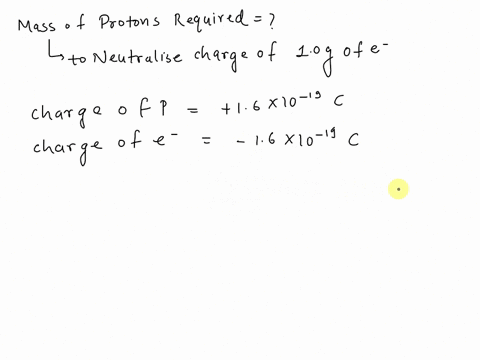 Mass of Protons Required = ?
↳ to Neutralise charge of 1.0g of e⁻
charge of P = +1.6 × 10⁻¹⁹ C
charge of e⁻ = -1.6 × 10⁻¹⁹ C